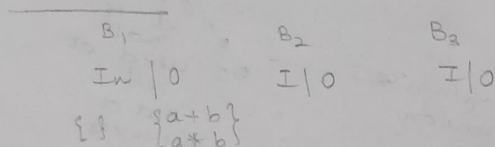 B1 B2 B3
In | O I | O I | O
{ } {a + b
a * b}